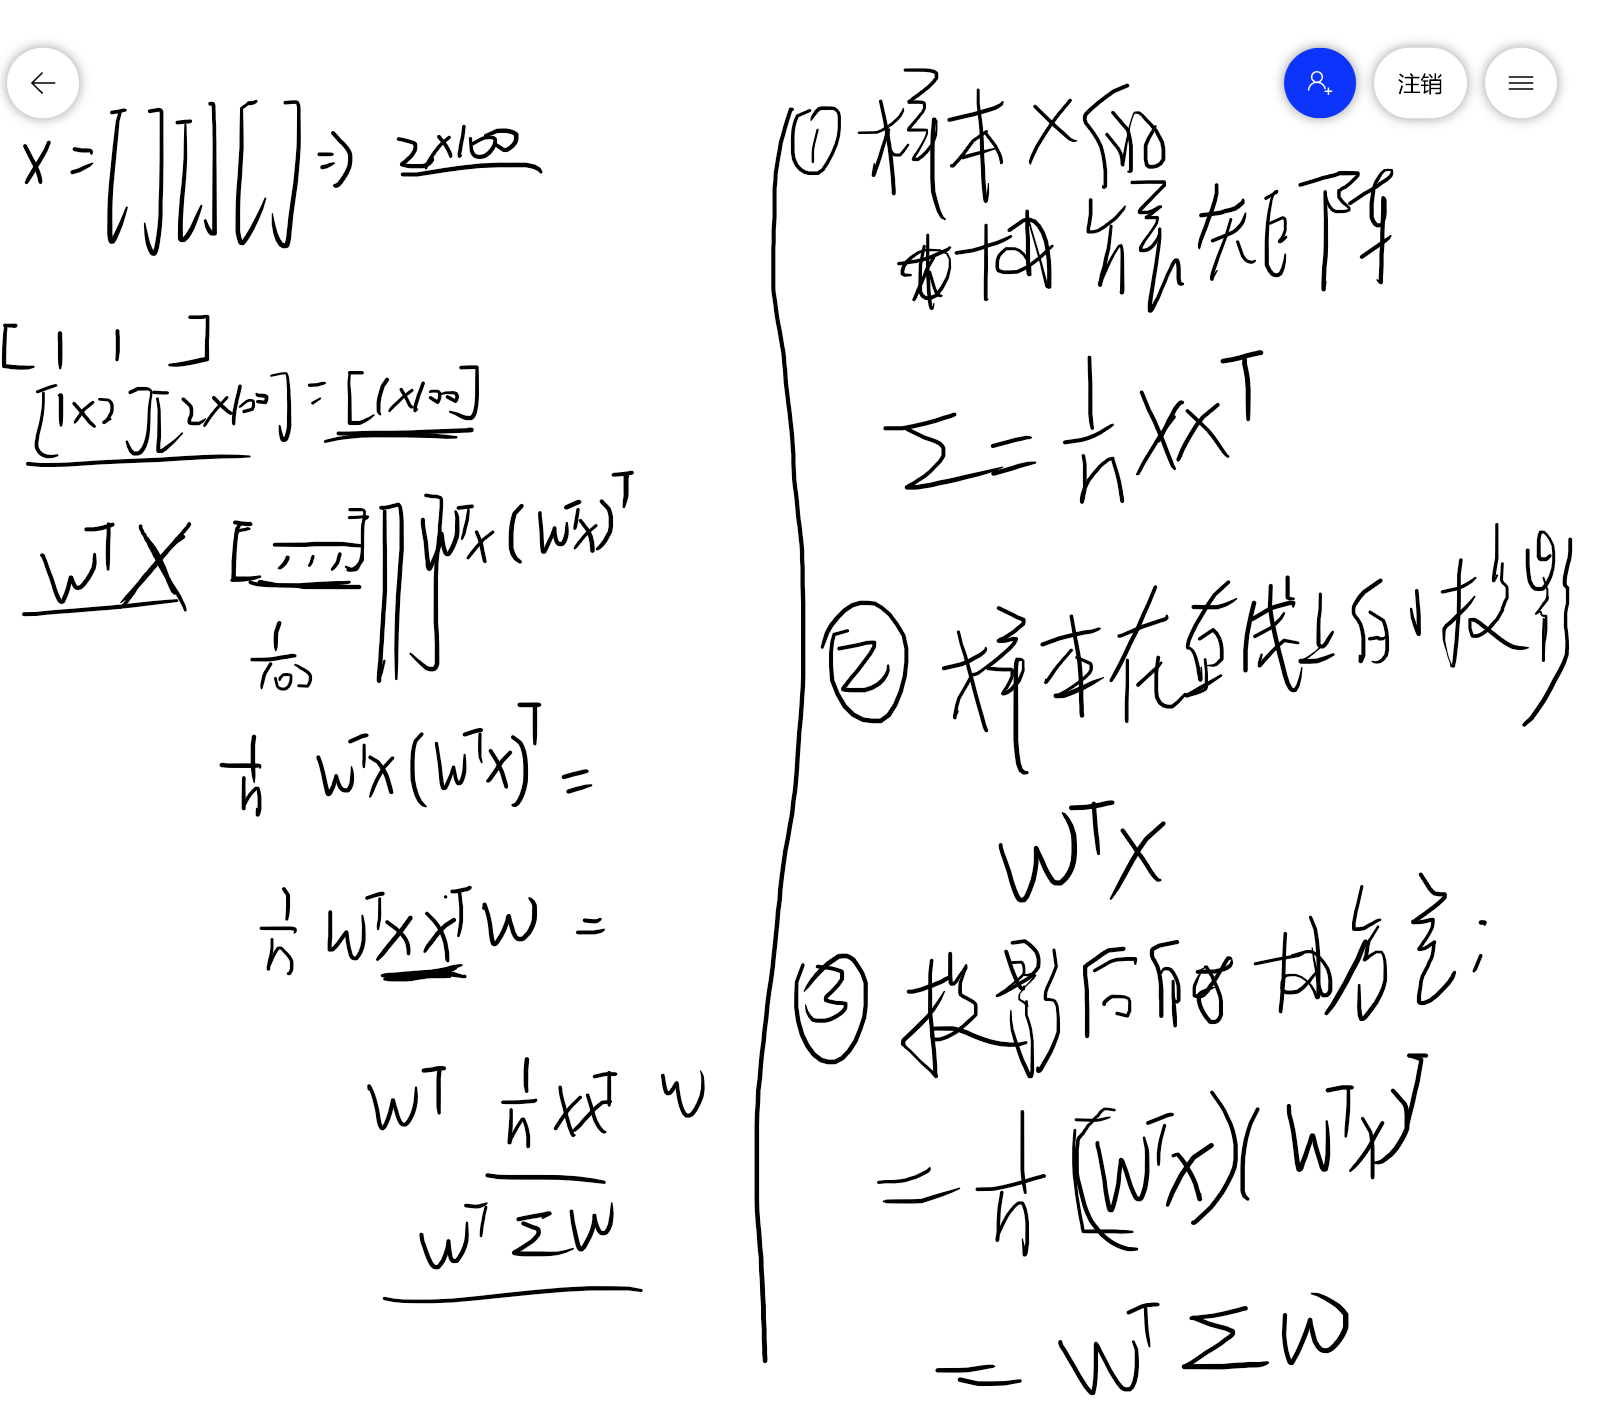 注销
X = [ ] [ ] [ ] ⇒ 2×100
[ 1 1 ]
[1×2][2×100] = [1×100]
W^T X [ ] W^T X (W^T X)^T
1/100
1/n W^T X (W^T X)^T =
1/n W^T X X^T W =
W^T 1/n X X^T W
W^T Σ W
① 样本 X 的
协方差矩阵
Σ = 1/n X X^T
② 样本在直线上的投影
W^T X
③ 投影后的协方差:
= 1/n (W^T X)(W^T X)^T
= W^T Σ W